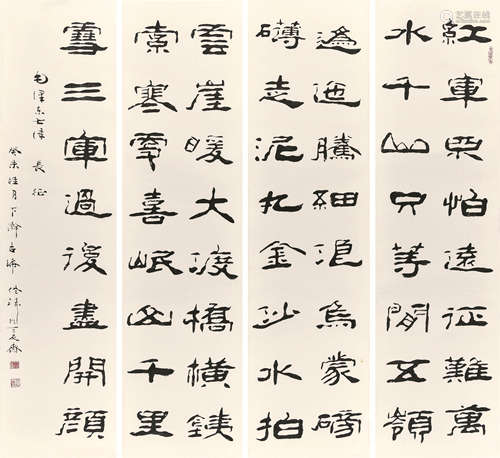 紅軍不怕遠征難萬
水千山只等閒五嶺
逶迤騰細浪烏蒙磅
礴走泥丸金沙水拍
雲崖暖大渡橋橫鐵
索寒更喜岷山千里
雪三軍過後盡開顏
毛澤东七律 長征
癸未桂月下澣